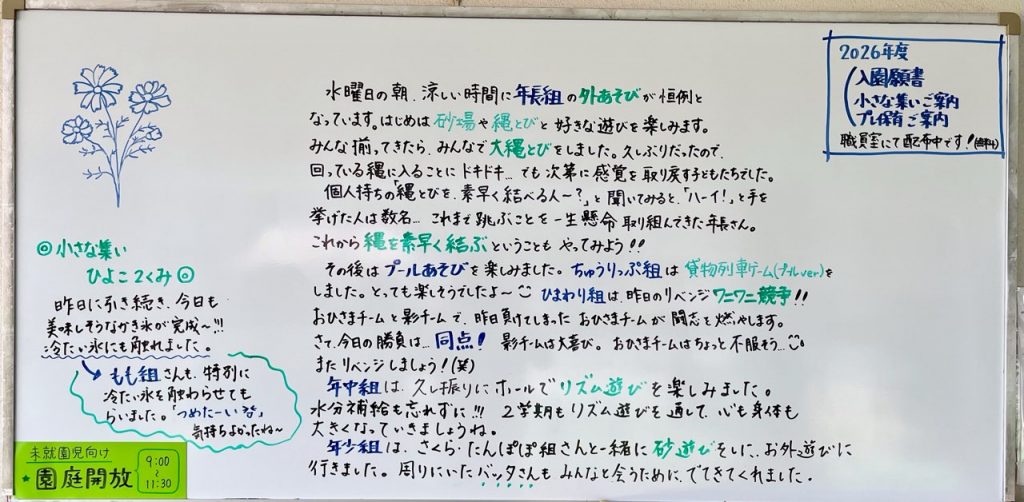 水曜日の朝、涼しい時間に年長組の外あそびが恒例と
なっています。はじめは砂場や縄とびと好きな遊びを楽しみます。
みんな揃ってきたら、みんなで大縄とびをしました。久しぶりだったので、
回っている縄に入ることにドキドキ…でも次第に感覚を取り戻す子どもたちでした。
個人持ちの「縄とびを、素早く結べる人〜?」と聞いてみると、「ハーイ!」と手を
挙げた人は数名… これまで跳ぶことを一生懸命取り組んできた年長さん。
これから縄を素早く結ぶということもやってみよう!!
その後はプールあそびを楽しみました。ちゅうりっぷ組は貨物列車ゲーム(プールver)を
しました。とっても楽しそうでしたよ〜 ひまわり組は、昨日のリベンジワニワニ競争!!
おひさまチームと影チームで、昨日負けてしまったおひさまチームが闘志を燃やします。
さて、今日の勝負は…同点! 影チームは大喜び。おひさまチームはちょっと不服そう…
またリベンジしましょう!(笑)
年中組は、久し振りにホールでリズム遊びを楽しみました。
水分補給も忘れずに!!! 2学期もリズム遊びを通して、心も身体も
大きくなっていきましょうね。
年少組は、さくら・たんぽぽ組さんと一緒に砂遊びそして、お外遊びに
行きました。周りにいたバッタさんもみんなと会うために、でてきてくれました。
2026年度
入園願書
小さな集いご案内
プレ保育ご案内
職員室にて配布中です!(無料)
◎小さな集い
ひよこ2くみ◎
昨日に引き続き、今日も
美味しそうなかき氷が完成〜!!!
冷たい氷にも触れました。
もも組さんも、特別に
冷たい氷を触わらせても
らいました。「つめたーい!!」
気持ちよかったね〜
未就園児向け
★園庭開放
9:00
〜
11:30